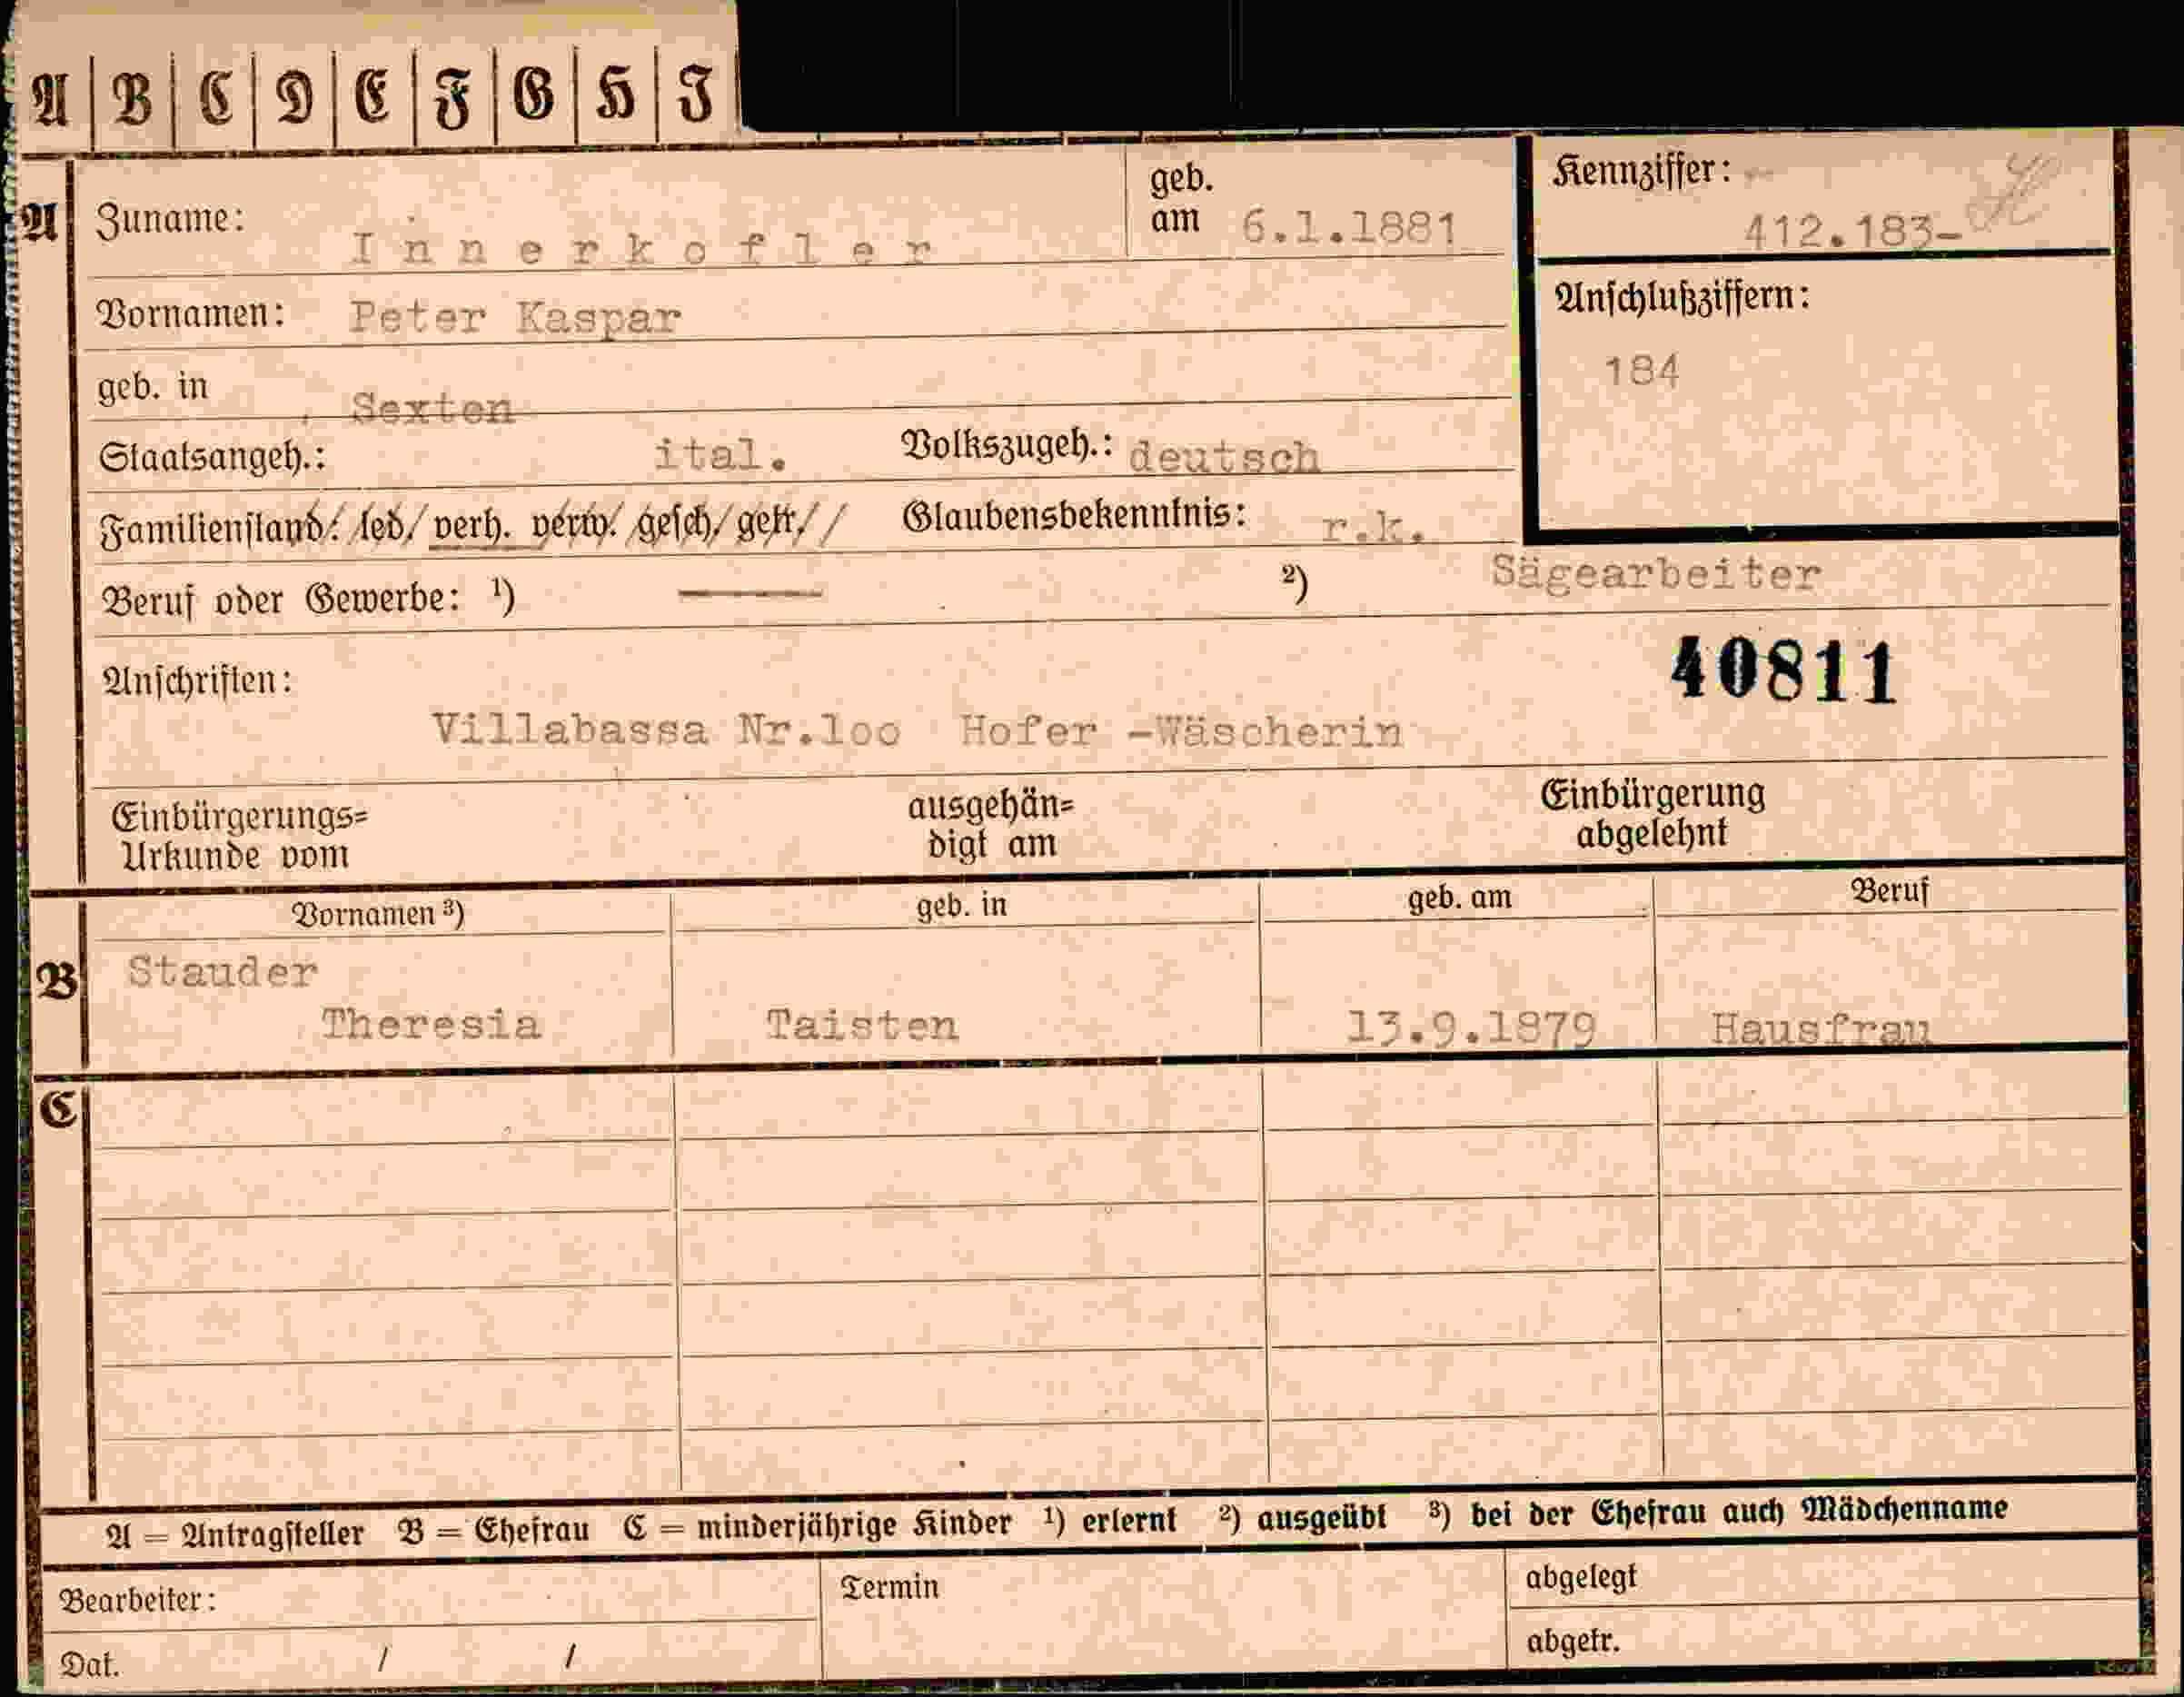 A B C D E F G H I
A Zuname: Innerkofler geb. am 6.1.1881
Kennziffer: 412.183-
Vornamen: Peter Kaspar
Anschlußziffern:
184
geb. in Sexten
Staatsangeh.: ital. Volkszugeh.: deutsch
Familienstand: led/ verh. verw. gesch/ getr. Glaubensbekenntnis: r.k.
Beruf oder Gewerbe: ¹) ——— ²) Sägearbeiter
40811
Anschriften:
Villabassa Nr.loo Hofer -Wäscherin
Einbürgerungs=
Urkunde vom
ausgehän=
digt am
Einbürgerung
abgelehnt
Vornamen ³) geb. in geb. am Beruf
B Stauder
Theresia Taisten 13.9.1879 Hausfrau
C
A = Antragsteller B = Ehefrau C = minderjährige Kinder ¹) erlernt ²) ausgeübt ³) bei der Ehefrau auch Mädchenname
Bearbeiter: Termin abgelegt
Dat. / / abgetr.